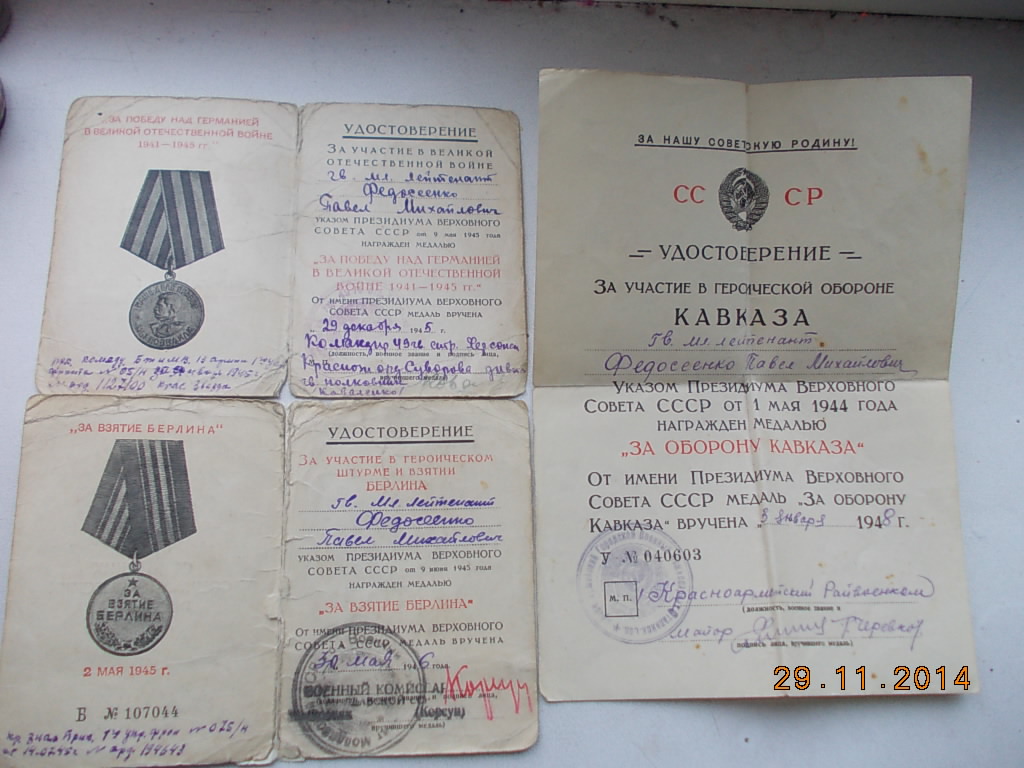 "ЗА ПОБЕДУ НАД ГЕРМАНИЕЙ
В ВЕЛИКОЙ ОТЕЧЕСТВЕННОЙ ВОЙНЕ
1941—1945 гг."
УДОСТОВЕРЕНИЕ
ЗА УЧАСТИЕ В ВЕЛИКОЙ
ОТЕЧЕСТВЕННОЙ ВОЙНЕ
гв. мл. лейтенант
Федосеенко
Павел Михайлович
УКАЗОМ ПРЕЗИДИУМА ВЕРХОВНОГО
СОВЕТА СССР от 9 мая 1945 года
НАГРАЖДЕН МЕДАЛЬЮ
"ЗА ПОБЕДУ НАД ГЕРМАНИЕЙ
В ВЕЛИКОЙ ОТЕЧЕСТВЕННОЙ
ВОЙНЕ 1941—1945 гг."
ОТ ИМЕНИ ПРЕЗИДИУМА ВЕРХОВНОГО
СОВЕТА СССР МЕДАЛЬ ВРУЧЕНА
"29 декабря 1945 г.
Командир
(должность, военное звание и подпись лица,
Краснозн орд. Суворова
гв полковник
Коваленко
"ЗА ВЗЯТИЕ БЕРЛИНА"
ЗА
ВЗЯТИЕ
БЕРЛИНА
2 МАЯ 1945 г.
Б № 107044
УДОСТОВЕРЕНИЕ
ЗА УЧАСТИЕ В ГЕРОИЧЕСКОМ
ШТУРМЕ И ВЗЯТИИ
БЕРЛИНА
гв. мл. лейтенант
Федосеенко
Павел Михайлович
УКАЗОМ ПРЕЗИДИУМА ВЕРХОВНОГО
СОВЕТА СССР от 9 июня 1945 года
НАГРАЖДЕН МЕДАЛЬЮ
"ЗА ВЗЯТИЕ БЕРЛИНА"
ОТ ИМЕНИ ПРЕЗИДИУМА ВЕРХОВНОГО
СОВЕТА СССР МЕДАЛЬ ВРУЧЕНА
30 мая 1946 года
ВОЕННЫЙ КОМИССАР
(Корсун)
вручившего медаль)
ЗА НАШУ СОВЕТСКУЮ РОДИНУ!
СС СР
— УДОСТОВЕРЕНИЕ —
ЗА УЧАСТИЕ В ГЕРОИЧЕСКОЙ ОБОРОНЕ
КАВКАЗА
гв. мл. лейтенант
Федосеенко Павел Михайлович
УКАЗОМ ПРЕЗИДИУМА ВЕРХОВНОГО
СОВЕТА СССР ОТ 1 МАЯ 1944 ГОДА
НАГРАЖДЕН МЕДАЛЬЮ
"ЗА ОБОРОНУ КАВКАЗА"
ОТ ИМЕНИ ПРЕЗИДИУМА ВЕРХОВНОГО
СОВЕТА СССР МЕДАЛЬ „ЗА ОБОРОНУ
КАВКАЗА" ВРУЧЕНА „3 января 1948 г.
У № 040603
М. П.
Красноармейский Райвоенком
(должность, военное звание и
майор
подпись лица, вручившего медаль)
29.11.2014